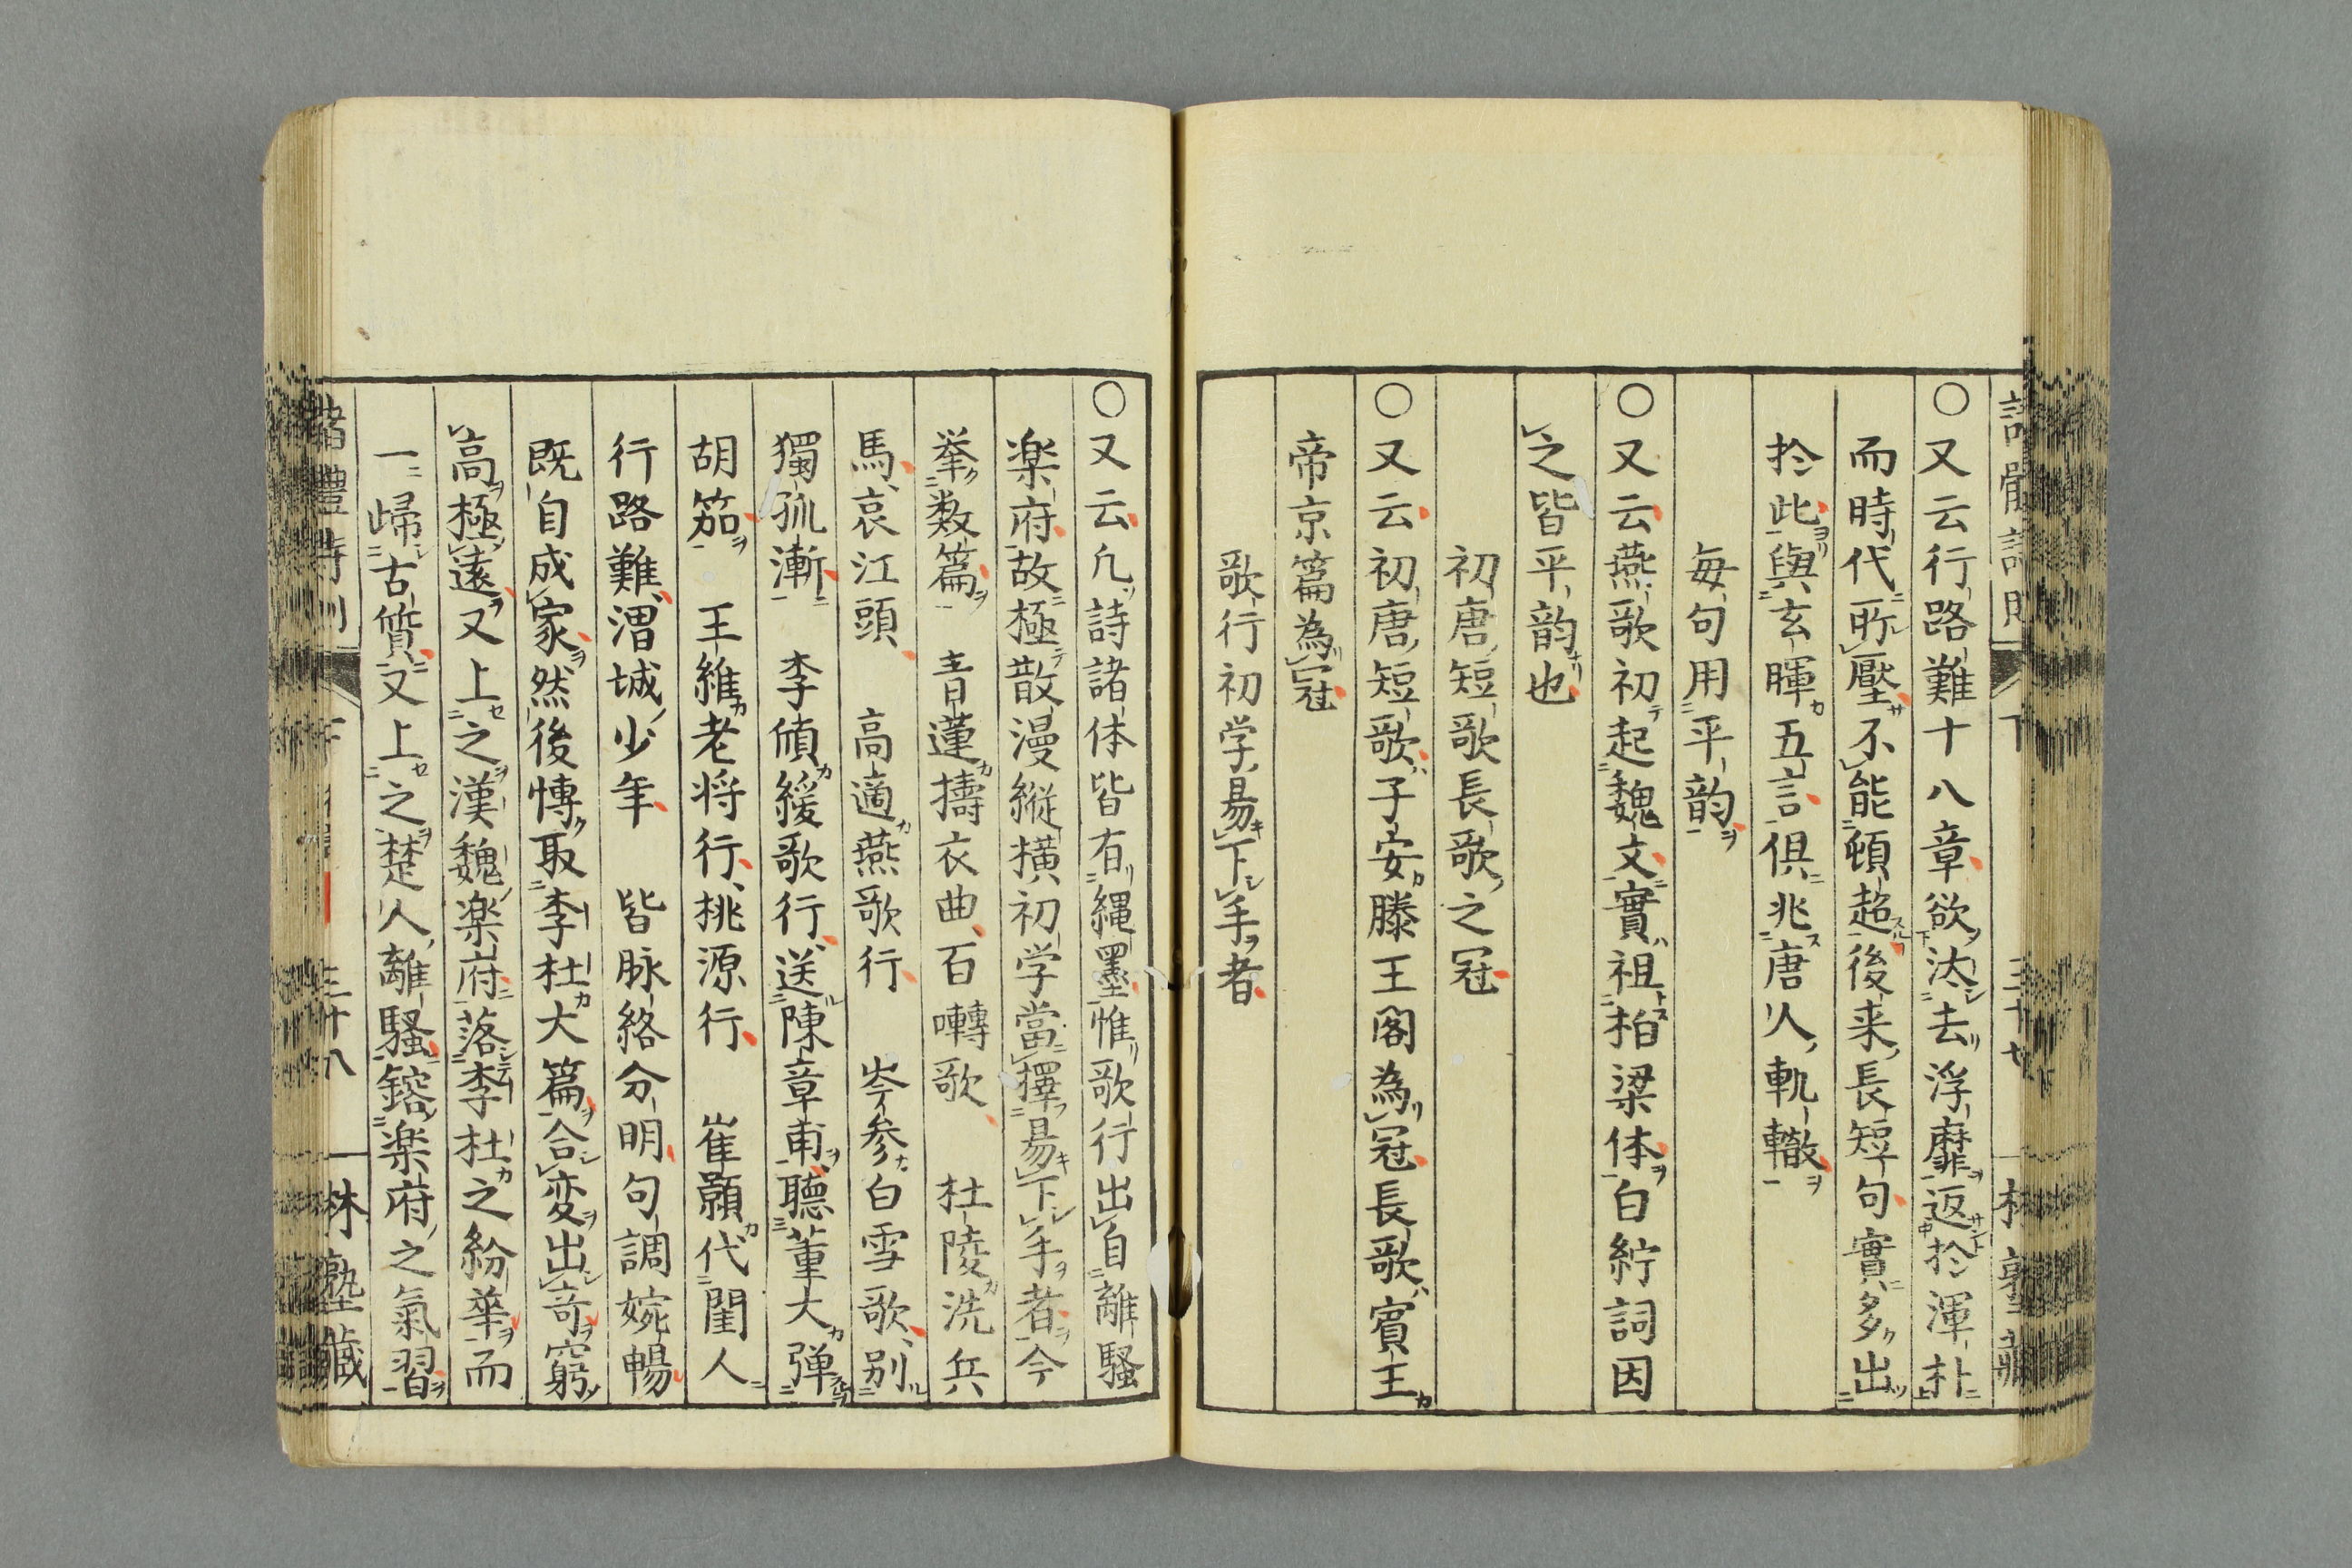 ○又云行路難十八章欲汰去浮靡返於渾朴
而時代所壓不能頓超後来長短句實多出
於此與玄暉五言俱兆唐人軌轍
毎句用平韵
○又云燕歌初起魏文實祖柏梁体白紵詞因
之皆平韵也
初唐短歌長歌之冠
○又云初唐短歌子安滕王閣為冠長歌賓王
帝京篇為冠
歌行初学易下手者
○又云凢詩諸体皆有縄墨惟歌行出自離騷
楽府故極散漫縦横初学當擇易下手者今
挙数篇 青蓮擣衣曲百囀歌 杜陵洗兵
馬哀江頭 高適燕歌行 岑参白雪歌別
獨孤漸 李傾緩歌行送陳章甫聴董大弾
胡笳 王維老将行桃源行 崔顥代閨人
行路難渭城少年 皆脉絡分明句調婉暢
既自成家然後博取李杜大篇合変出奇窮
高極遠又上之漢魏楽府落李杜之紛華而
一歸古質又上之楚人離騷鎔楽府之氣習
下 三十八
一林塾藏